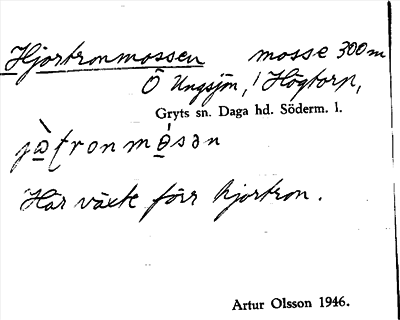 Hjortronmossen mosse 300 m
Ö Ungsjön, / Högtorp,
Gryts sn. Daga hd. Söderm. l.
Här växte förr hjortron.
Artur Olsson 1946.